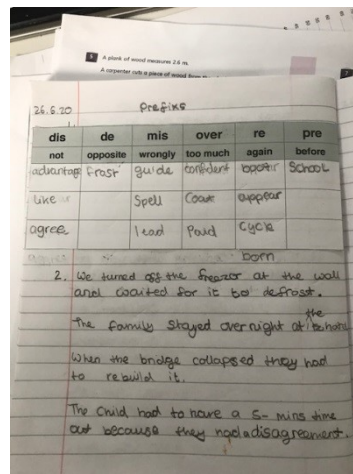 A plank of wood measures 2.6 m.
A carpenter cuts a piece of wood from
26.6.20 Prefixs
dis de mis over re pre
not opposite wrongly too much again before
advantage frost guide confident School
like Spell Coat appear
agree lead Paid Cycle
born
2. We turned off the freezor at the wall
and waited for it to defrost.
the
The family stayed over night at
When the bridge collapsed they had
to rebuild it.
The Child had to have a 5- mins time
out because they had a disagreement.